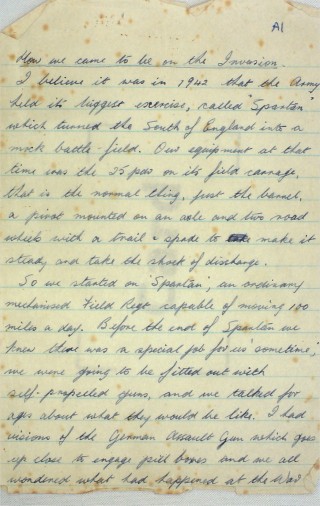 A1
How we came to be on the Invasion.
I believe it was in 1942 that the Army
held its biggest exercise, called "Spartan"
which turned the South of England into a
mock battle-field. Our equipment at that
time was the 25 pdr on its field carriage,
that is the normal thing, just the barrel,
a pivot mounted on an axle and two road
wheels with a trail & spade to make it
steady and take the shock of discharge.
So we started on 'Spartan', an ordinary
mechanised Field Regt capable of moving 100
miles a day. Before the end of Spartan we
knew there was a special job for us 'sometime',
we were going to be fitted out with
self-propelled guns, and we talked for
ages about what they would be like. I had
visions of the German Assault Gun which goes
up close to engage pill boxes and we all
wondered what had happened at the War